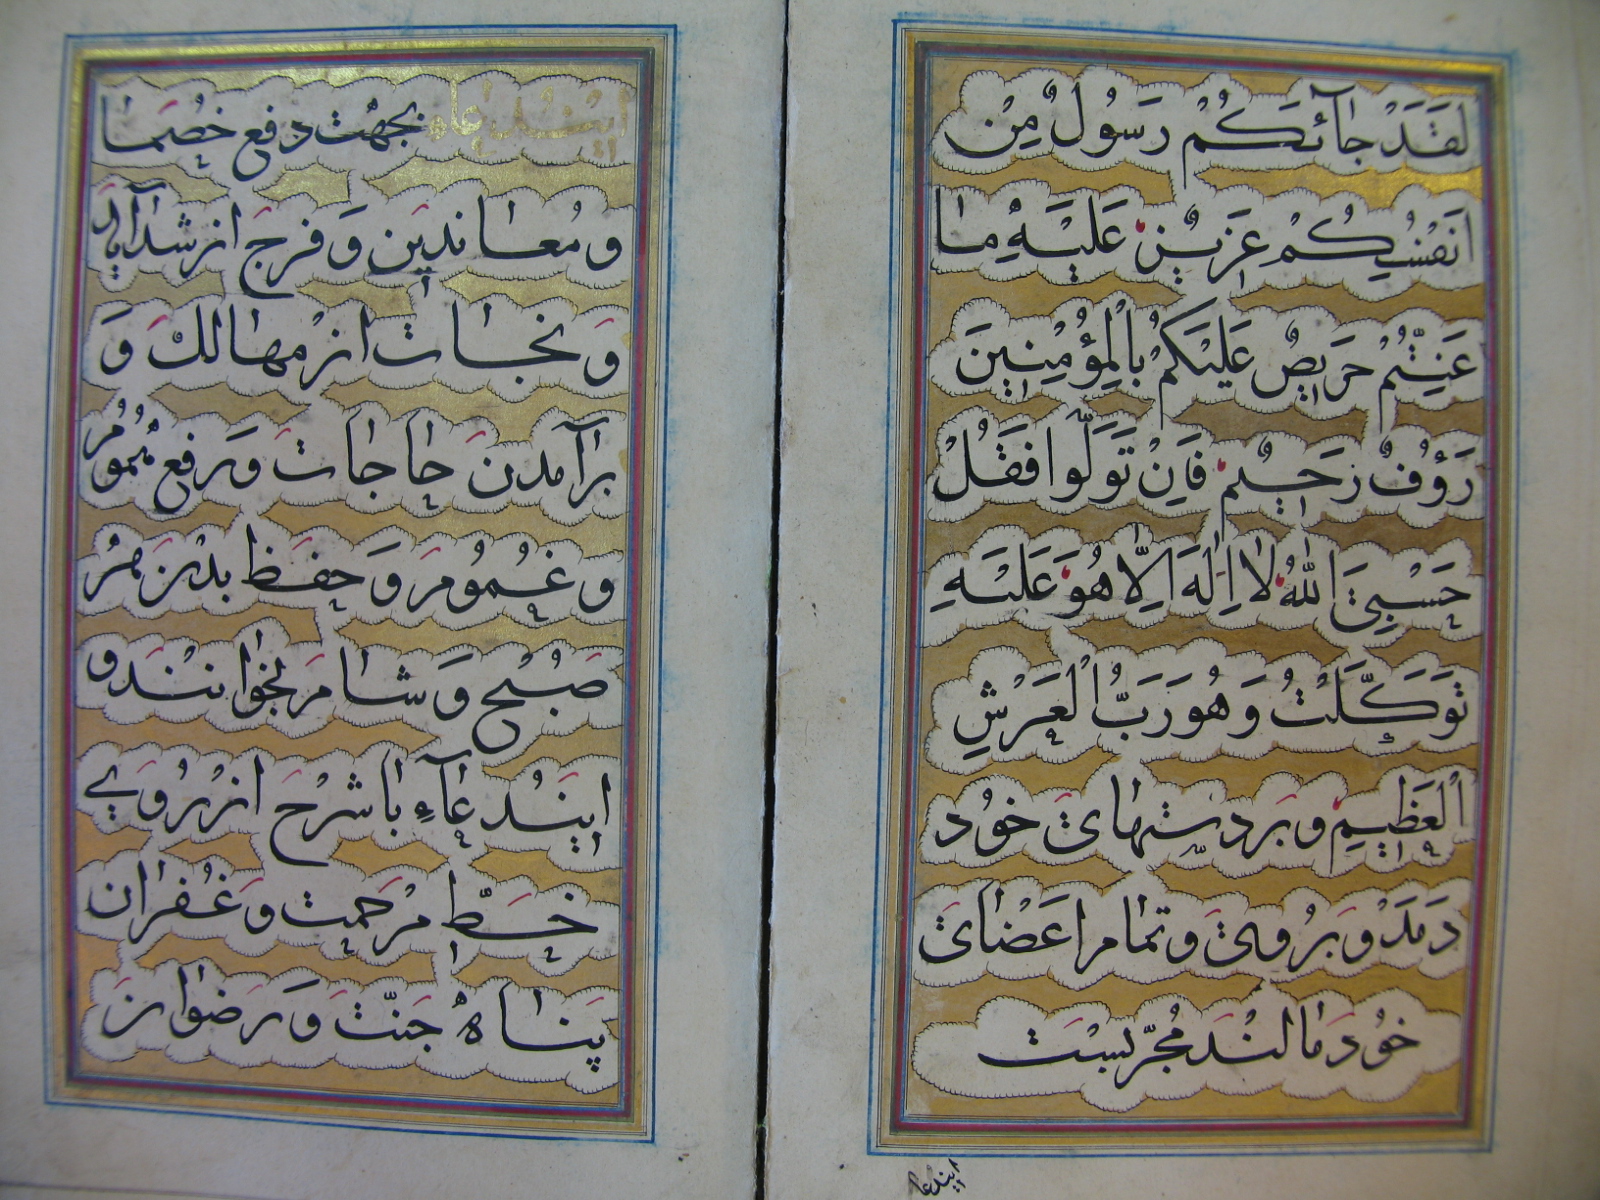 لَقَدْ جَآئَكُمْ رَسُولٌ مِنْ
اَنْفُسِكُمْ عَزِيزٌ عَلَيْهِ مَا
عَنِتُّمْ حَرِيصٌ عَلَيْكُمْ بِالْمُؤْمِنِينَ
رَؤُفٌ رَحِيمٌ فَاِنْ تَوَلَّوْا فَقُلْ
حَسْبِيَ اللّٰهُ لَا اِلٰهَ اِلَّا هُوَ عَلَيْهِ
تَوَكَّلْتُ وَهُوَ رَبُّ الْعَرْشِ
الْعَظِيمِ و بر دستهای خود
دمد و بروی و تمام اعضای
خود مالند مجرّبست
ایندعا
ایندعاء بجهت دفع خصما
و معاندین و فرج از شداید
و نجات از مهالک و
برآمدن حاجات و رفع هموم
و غموم و حفظ بدن هر
صبح و شام بخوانند و
ایندعآء با شرح از روی
خطّ مرحمت و غفران
پناه جنّت و رضوان